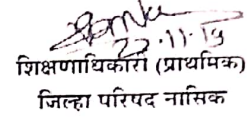 22.11.19
शिक्षणाधिकारी (प्राथमिक)
जिल्हा परिषद नासिक